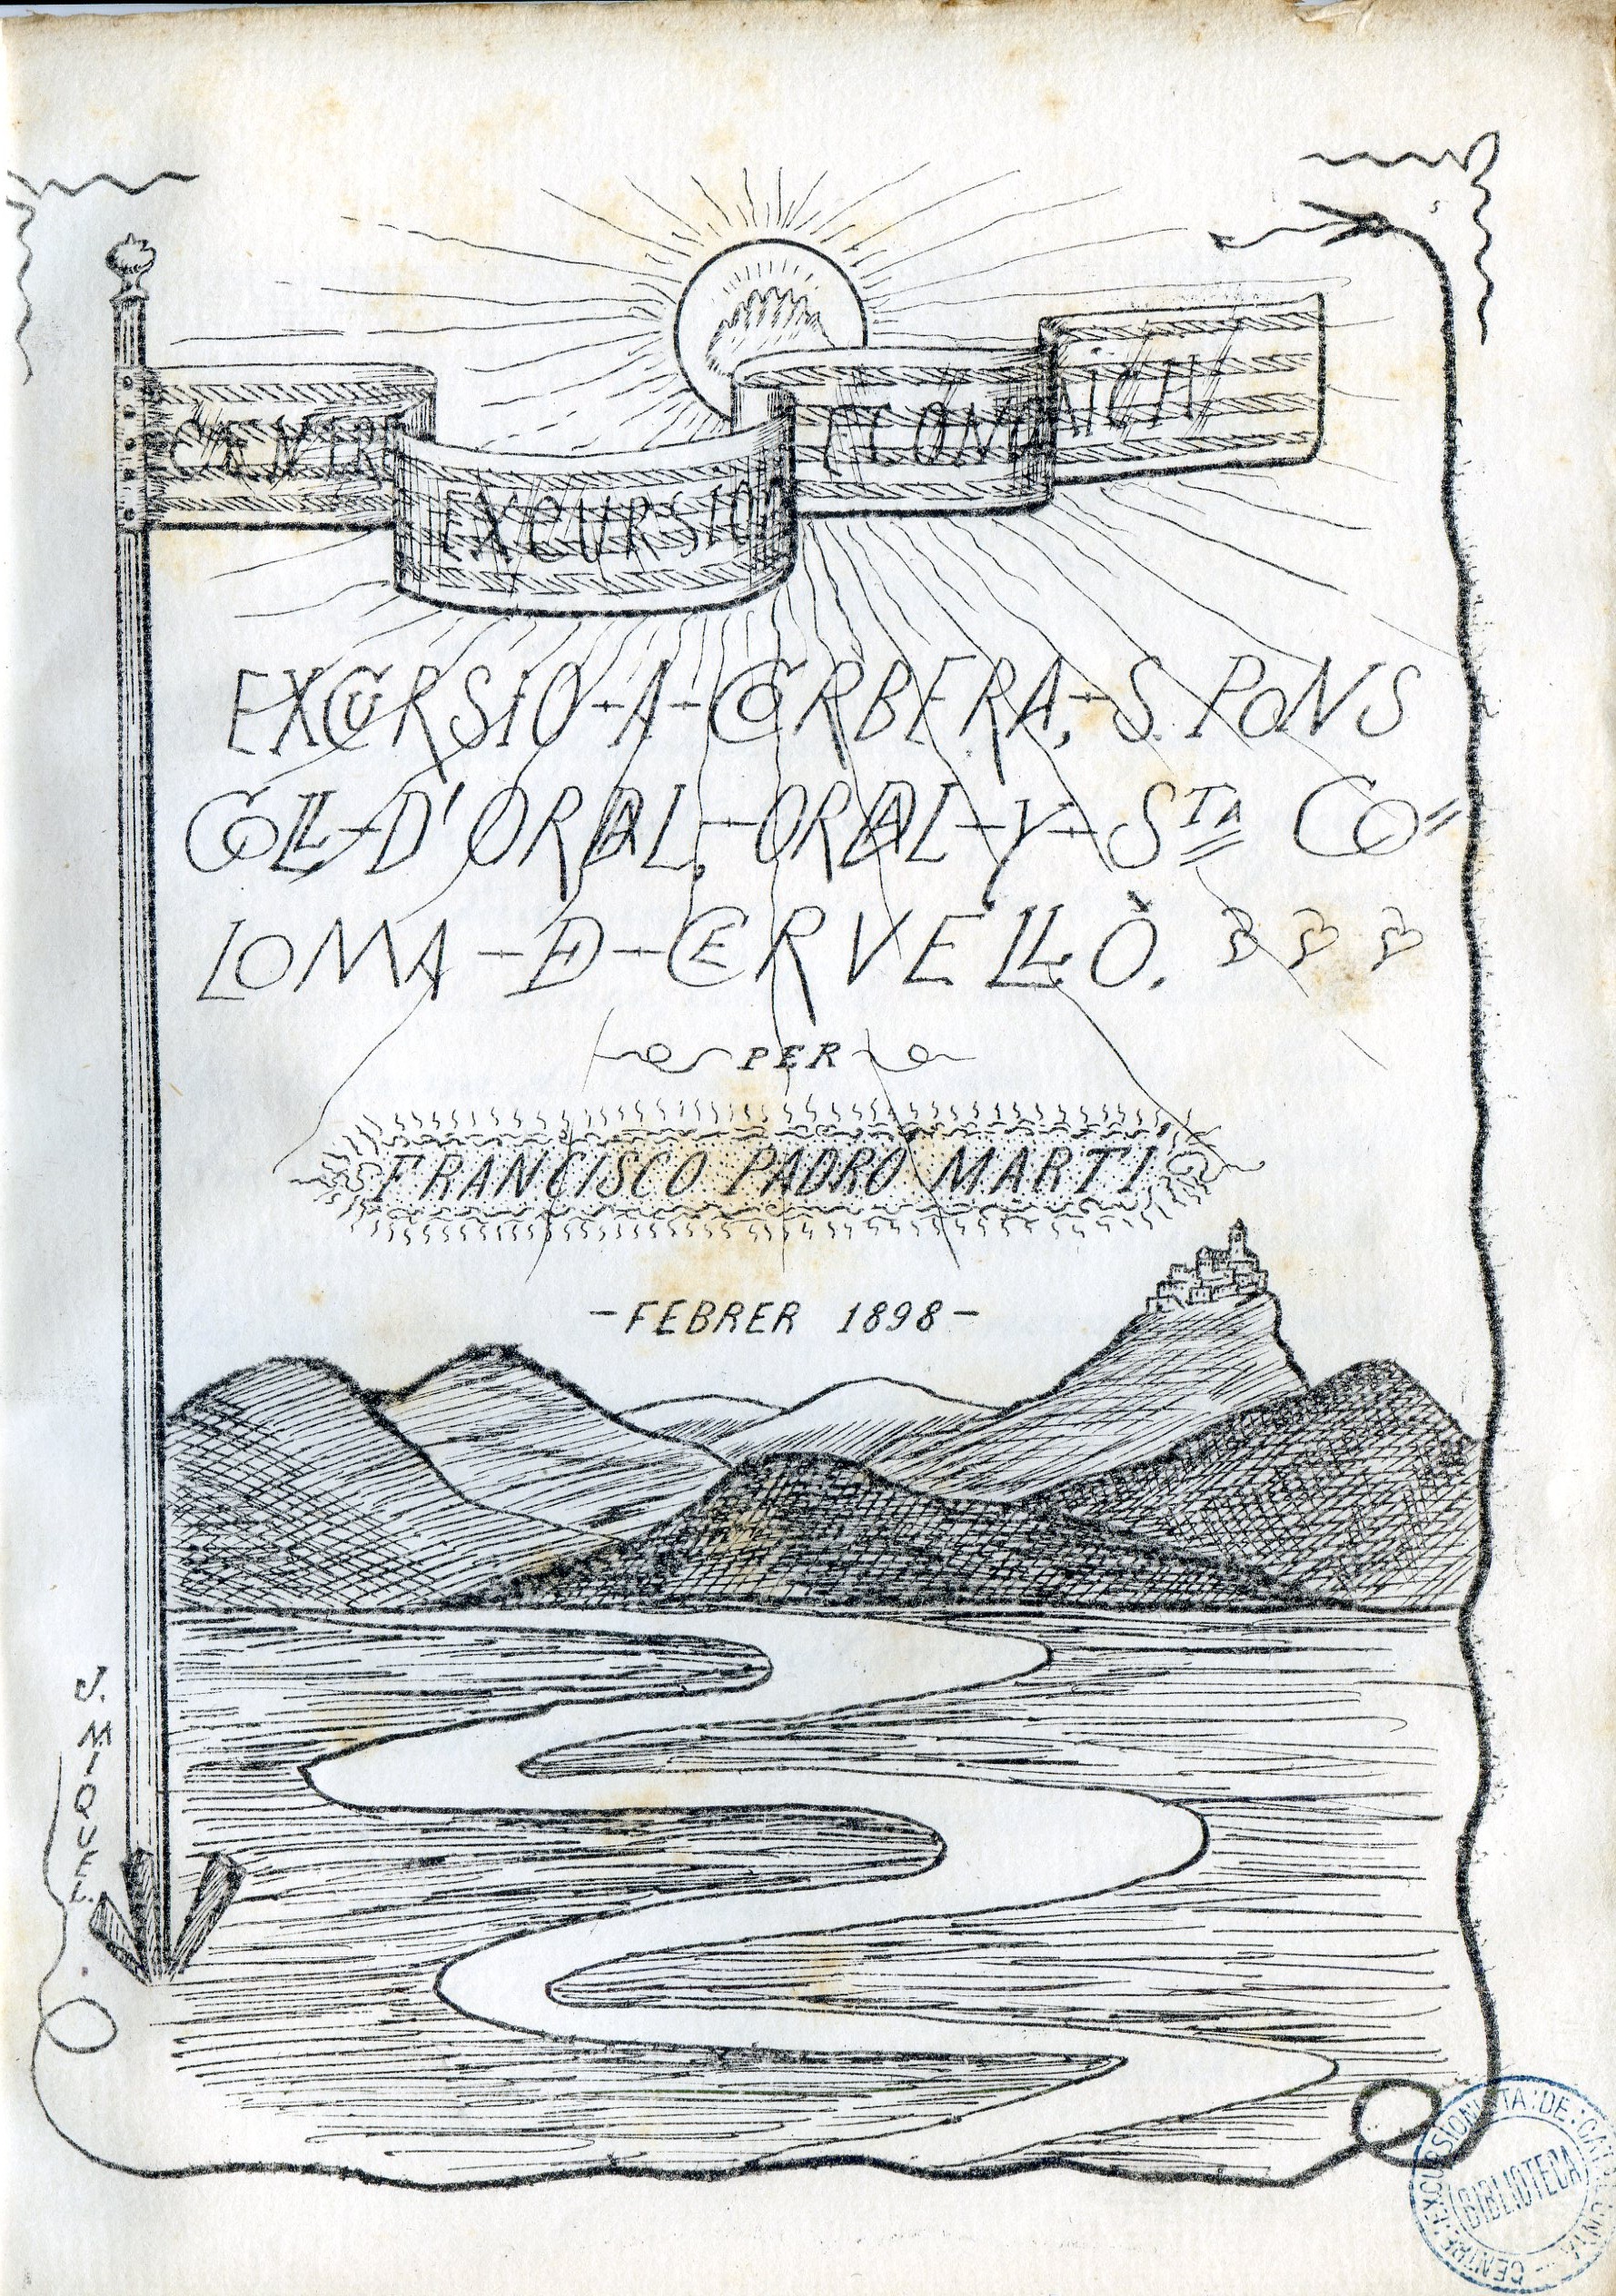 CENTRE
EXCURSIO
ECONOMICH
EXCURSIO-A-CORBERA,-S. PONS
COLL-D'ORDAL,-ORDAL-Y-STA CO=
LOMA-DE-CERVELLÒ.
PER
FRANCISCO PADRO MARTI
-FEBRER 1898-
J. MIQUEL.
CENTRE·EXCURSIONISTA·DE·CATALUNYA
BIBLIOTECA